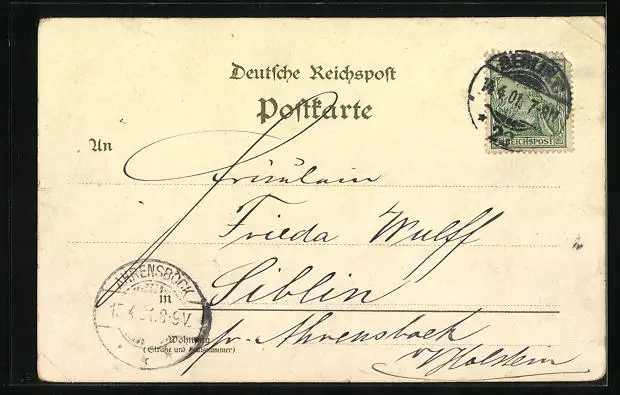 Deutsche Reichspost
Postkarte
BERLIN
14.4.01. 7-
* 22
REICHSPOST
An
Fräulein
Frieda Wulff
AHRENSBÖCK
15.4.01.8-9V.
in
Siblin
pr. Ahrensboeck
Wohnung
(Straße und Hausnummer)
i/Holstein